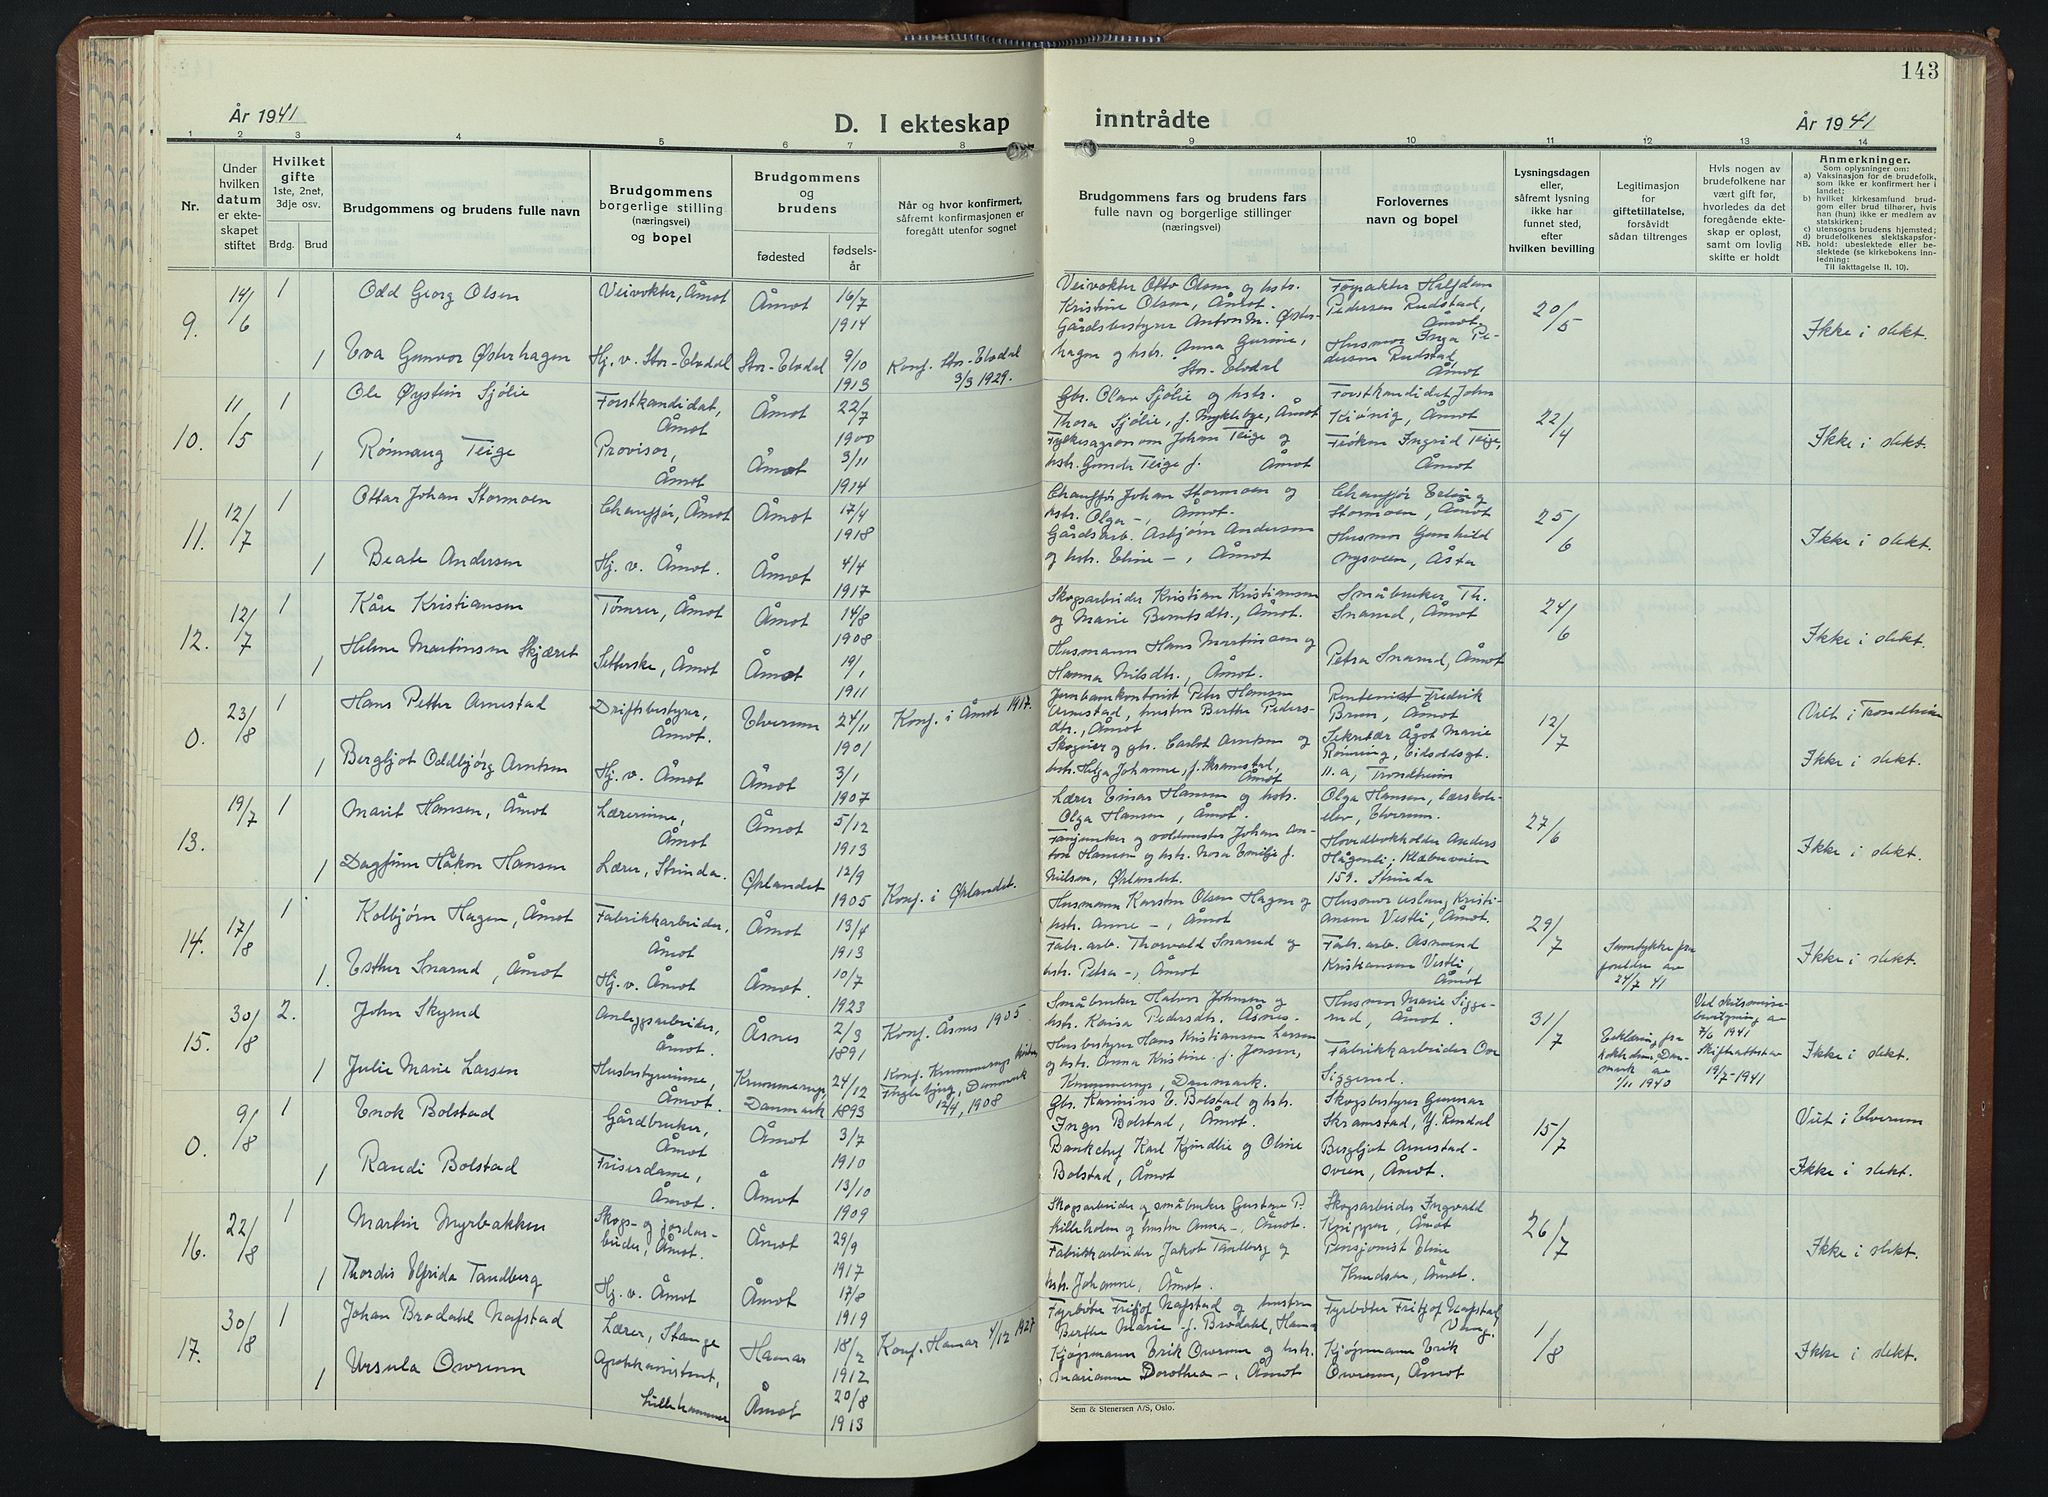 143
År 1941
D. I ekteskap
inntrådte
År 1941
1 2 3 4 5 6 7 8 9 10 11 12 13 14
Nr.
Under
hvilken
datum
er ekte-
skapet
stiftet
Hvilket
gifte
1ste, 2net,
3dje osv.
Brdg. Brud
Brudgommens og brudens fulle navn
Brudgommens
borgerlige stilling
(næringsvei)
og bopel
Brudgommens
og
brudens
fødested
fødsels-
år
Når og hvor konfirmert,
såfremt konfirmasjonen er
foregått utenfor sognet
Brudgommens fars og brudens fars
fulle navn og borgerlige stillinger
(næringsvei)
Forlovernes
navn og bopel
Lysningsdagen
eller,
såfremt lysning
ikke har
funnet sted,
efter
hvilken bevilling
Legitimasjon
for
giftetillatelse,
forsåvidt
sådan tiltrenges
Hvis nogen av
brudefolkene har
vært gift før,
hvorledes da det
foregående ekte-
skap er opløst,
samt om lovlig
skifte er holdt
Anmerkninger.
Som oplysninger om:
a) Vaksinasjon for de brudefolk,
som ikke er konfirmert her i
landet;
b) hvilket kirkesamfund brud-
gom eller brud tilhører, hvis
han (hun) ikke er medlem av
statskirken;
c) utensogns brudens hjemsted;
d) brudefolkenes slektskapsfor-
NB. hold: ubeslektede eller be-
slektede (se kirkebokens inn-
ledning:
Til iakttagelse II. 10).
9.
14/6
1
Odd Georg Olsen
Veivokter, Åmot
Åmot
16/7
1914
Veivokter Otto Olsen og hstr.
Kristine Olsen, Åmot.
Halfdan
Pedersen Rudstad,
Åmot.
20/5
Ikke i slekt.
1
Eva Gunvor Østerhagen
Hj. v. Stor-Elvdal
Stor-Elvdal
9/10
1913
Konf. Stor-Elvdal
3/3 1929.
Gårdsbestyrer Anton M. Øster-
hagen og hstr. Anna Gurine,
Stor-Elvdal
Husmor Inga Pe-
dersen Rudstad,
Åmot
10.
11/5
1
Ole Øystein Sjølie
Forstkandidat,
Åmot
Åmot
22/7
1900
Gbr. Olav Sjølie og hstr.
Thora Sjølie, f. Myklebye, Åmot
Forstkandidat John
Kiønig, Åmot
22/4
Ikke i slekt.
1
Rønnaug Teige
Provisor,
Åmot
Åmot
3/11
1914
Fylkesagronom Johan Teige og
hstr. Gunda Teige f. Åmot
Frøken Ingrid Teige,
Åmot
11.
12/7
1
Ottar Johan Stormoen
Chauffør, Åmot
Åmot
17/4
1918
Chauffør Johan Stormoen og
hstr. Olga -, Åmot.
Chauffør
Stormoen, Åmot
25/6
Ikke i slekt.
1
Beate Andersen
Hj. v. Åmot.
Åmot
4/4
1917
Gårdsarb. Asbjørn Andersen
og hstr. Eline -, Åmot
Husmor Gunhild
Nysveen, Åsta
12.
12/7
1
Kåre Kristiansen
Tømrer, Åmot
Åmot
14/8
1908
Skogsarbeider Kristian Kristiansen
og Marie Berntsdtr., Åmot.
Småbruker Th.
Snarud, Åmot
24/6
Ikke i slekt.
1
Helene Martinsen Skjæret
Åmot
Åmot
19/1
1911
Husmann Hans Martinsen og
Hanna Nilsdtr., Åmot.
Petra Snarud, Åmot
0.
23/8
1
Hans Petter Arnestad
Driftsbestyrer,
Åmot.
Elverum
24/11
1901
Konf. i Åmot 1917.
Jernbanekontorist Peter Hansen
Arnestad, hustru Berthe Peders-
dtr., Åmot
Fredrik
Brun, Åmot
12/7
Viet i Trondheim
Ikke i slekt.
1
Bergljot Oddbjørg Arntsen
Hj. v. Åmot
Åmot
3/1
1907
Skogeier og gbr. Carlot Arntsen og
hstr. Helga Johanne, f. Skramstad,
Åmot
Sekretær Ågot Marie
Rønning, Eidsvoldsgt.
11.a, Trondheim
13.
19/7
1
Marit Hansen, Åmot
Lærerinne,
Åmot
Åmot
5/12
1913
Lærer Einar Hansen og hstr.
Olga Hansen, Åmot.
Olga Hansen, lærskole-
elev, Elverum.
27/6
Ikke i slekt.
1
Dagfinn Håkon Hansen
Lærer, Strinda.
Ørlandet
12/9
1905
Konf. i Ørlandet.
Fanejunker og Johan An-
ton Hansen og hstr. Nora Emilie f.
Nilsen, Ørlandet.
Hovedbokholder Anders
Hågenli, Klæbuveien
159. Strinda
14.
17/8
1
Kolbjørn Hagen, Åmot
Fabrikkarbeider,
Åmot
Åmot
13/4
1913
Husmann Karsten Olsen Hagen og
hstr. Anne -, Åmot
Husmor Aslaug Kristi-
ansen Vestli, Åmot.
29/7
Samtykke fra
foreldre av
24/7 41
Ikke i slekt.
1.
Esther Snarud, Åmot
Hj. v. Åmot
Åmot.
10/7
1923
Fabr. arb. Thorvald Snarud og
hstr. Petra -, Åmot
Fabr. arb. Asmund
Kristiansen Vestli,
Åmot
15.
30/8
2.
John Skyrud
Anleggsarbeider,
Åmot.
Åsnes
2/3
1891
Konf. Åsnes 1905.
Småbruker Halvor Johnsen og
hstr. Karisa Pedersdtr. Åsnes.
Husmor Marie Sigge-
rud, Åmot.
31/7
Erklæring fra
Holstebro, Dan-
mark av
1/11 1940
Ved skilsmisse-
bevilgning av
7/6 1941
Skifteattest av
19/7-1941
Ikke i slekt.
1
Julie Marie Larsen
Husbestyrerinne,
Åmot.
Krummerup,
Danmark
24/12
1893
Konf. Krummerup kirke,
Fuglebjerg, Danmark
12/4, 1908
Husbestyrer Hans Kristiansen Larsen
og hstr. Anna Kristine f. Jensen,
Krummerup, Danmark.
Fabrikkarbeider Ove
Siggerud.
0.
9/8
1
Enok Bolstad
Gårdbruker,
Åmot
Åmot
3/7
1910
Gbr. Karinius E. Bolstad og hstr.
Inger Bolstad, Åmot.
Skogsbestyrer Gunnar
Skramstad, Y. Rendal
15/7
Viet i Elverum
Ikke i slekt.
1
Randi Bolstad
Friserdame,
Åmot.
Åmot
13/10
1909
Banksjef Karl Kjindlie og Oline
Bolstad, Åmot
Bergljot Arnestad-
sveen, Åmot.
16.
22/8
1
Martin Myrbakken
Skogs- og jordar-
beider, Åmot.
Åmot
29/9
1917
Skogsarbeider og småbruker Gustav P.
Lilleholen og hustru Anna -, Åmot.
Skogsarbeider Ingvald
Knipper, Åmot
26/7
Ikke i slekt.
1
Thordis Elfrida Tandberg
Hj. v. Åmot
Åmot
17/8
1919
Fabrikkarbeider Jakob Tandberg og
hstr. Johanne, Åmot.
Pensjonist Eline
Knudsen, Åmot.
17.
30/8
1
Johan Brodahl Nafstad
Lærer, Stange
Hamar
18/2
1912
Konf. Hamar 4/12 1927
Fyrbøter Fritjof Nafstad og hustru
Berthe Marie f. Brodahl, Hamar
Fyrbøter Fritjof Nafstad,
Vang.
1/8
Ikke i slekt.
1
Ursula Overenn
Apotekassistent,
Lillehammer
Åmot
20/8
1913
Kjøpmann Erik Overenn og hstr.
Marianne Dorothea -, Åmot
Kjøpmann Erik
Overenn, Åmot
Sem & Stenersen A/S, Oslo.